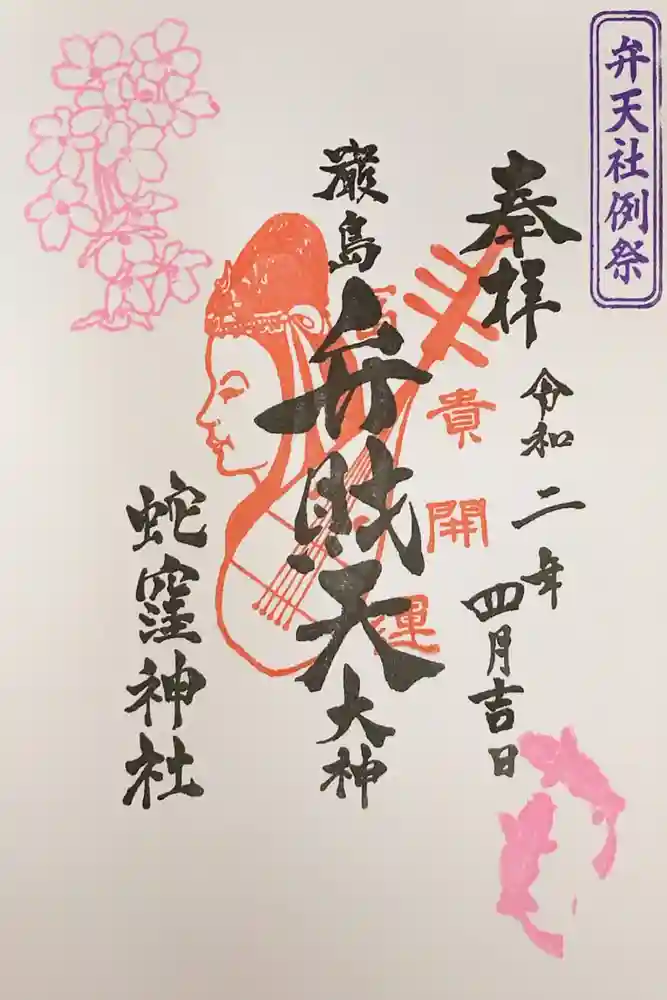 弁天社例祭
奉拝
令和二年
四月吉日
富貴開運
厳島弁財天大神
蛇窪神社